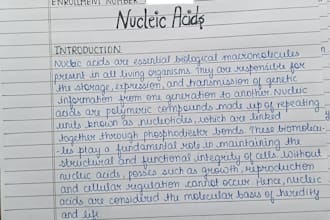 ENROLLMENT NUMBER
Nucleic Acids
INTRODUCTION
Nucleic acids are essential biological macromolecules
present in all living organisms. They are responsible for
the storage, expression, and transmission of genetic
information from one generation to another. Nucleic
acids are polymeric compounds made up of repeating
units known as nucleotides, which are linked
together through phosphodiester bonds. These biomolecu-
-les play a fundamental role in maintaining the
structural and functional integrity of cells. Without
nucleic acid, posses such as growth, reproduction
and cellular regulation cannot occur. Hence, nucleic
acids are considered the molecular basis of heredity
and life